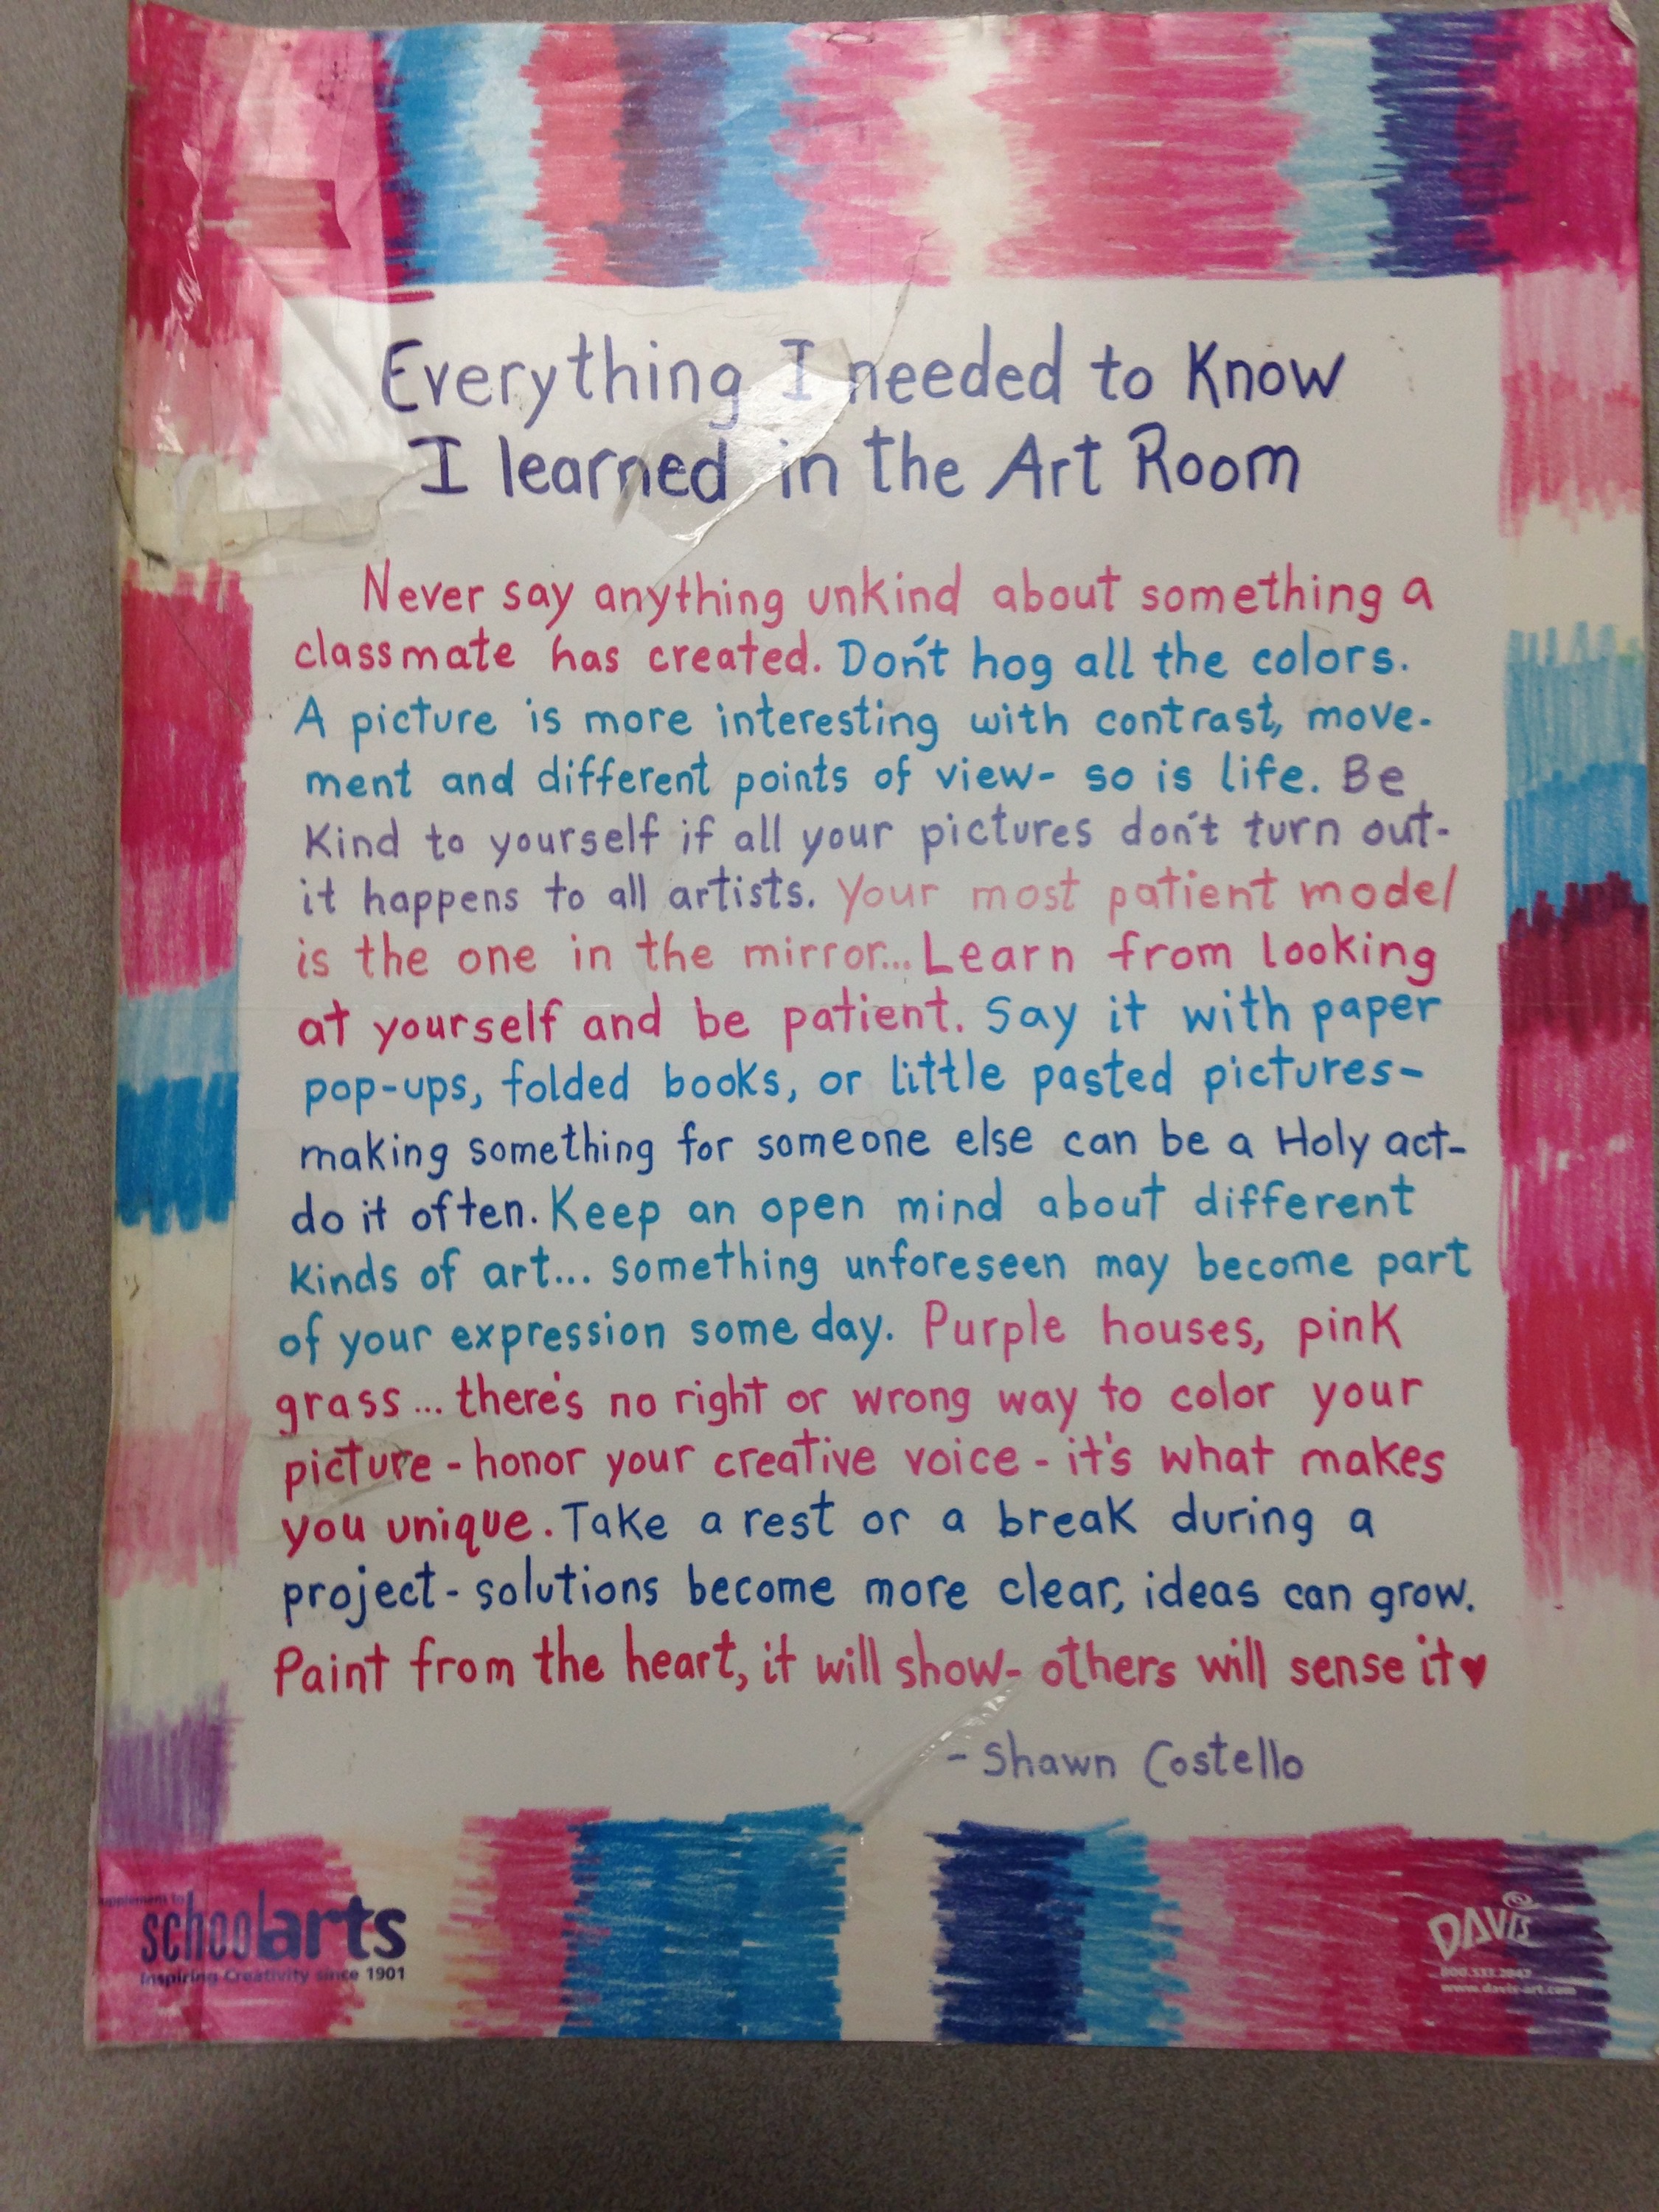 Everything I needed to Know
I learned in the Art Room
Never say anything unkind about something a
classmate has created. Don't hog all the colors.
A picture is more interesting with contrast, move-
ment and different points of view- so is life. Be
Kind to yourself if all your pictures don't turn out-
it happens to all artists. Your most patient model
is the one in the mirror... Learn from looking
at yourself and be patient. Say it with paper
pop-ups, folded books, or little pasted pictures-
making something for someone else can be a Holy act-
do it often. Keep an open mind about different
Kinds of art... something unforeseen may become part
of your expression some day. Purple houses, pink
grass... there's no right or wrong way to color your
picture - honor your creative voice - it's what makes
you unique. Take a rest or a break during a
project - solutions become more clear, ideas can grow.
Paint from the heart, it will show- others will sense it♥
- Shawn Costello
upplement to
schoolarts
Inspiring Creativity since 1901
DAVIS
800.533.2847
www.davis-art.com